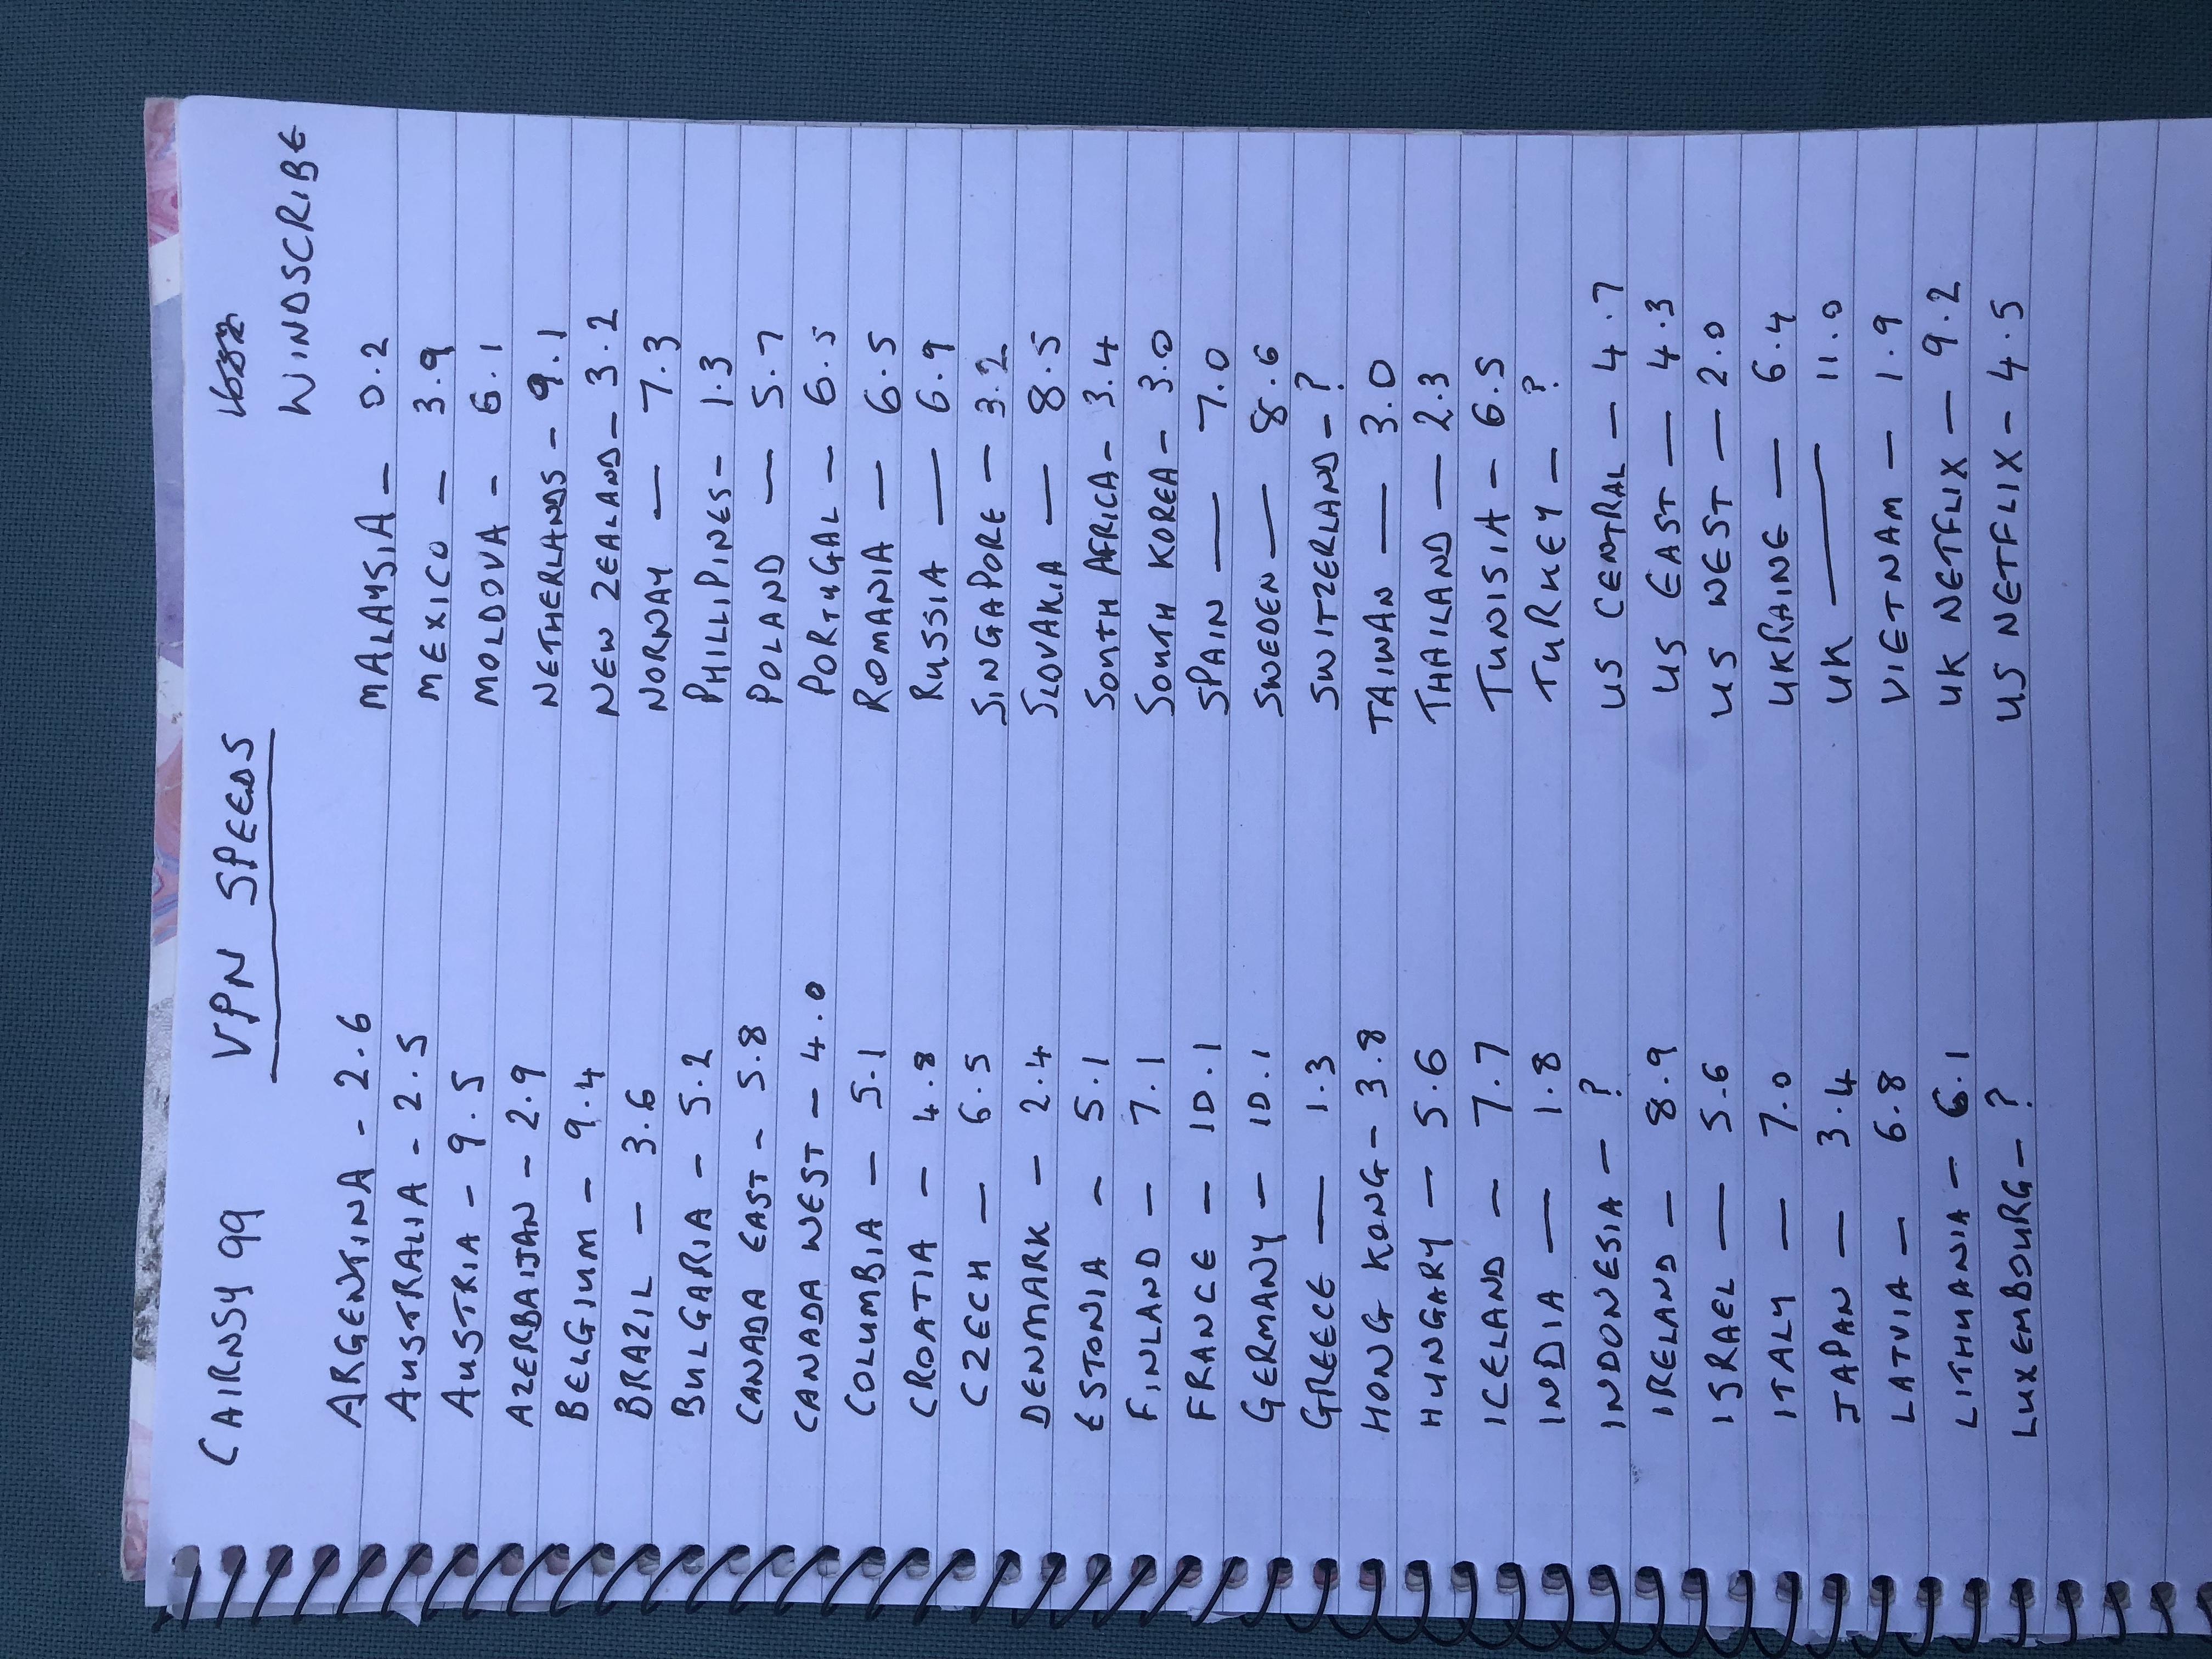 CAIRNSY99 VPN SPEEDS
WINDSCRIBE
ARGENTINA - 2.6
AUSTRALIA - 2.5
AUSTRIA - 9.5
AZERBAIJAN - 2.9
BELGIUM - 9.4
BRAZIL - 3.6
BULGARIA - 5.2
CANADA EAST - 5.8
CANADA WEST - 4.0
COLUMBIA - 5.1
CROATIA - 4.8
CZECH - 6.5
DENMARK - 2.4
ESTONIA - 5.1
FINLAND - 7.1
FRANCE - 10.1
GERMANY - 10.1
GREECE - 1.3
HONG KONG - 3.8
HUNGARY - 5.6
ICELAND - 7.7
INDIA - 1.8
INDONESIA - ?
IRELAND - 8.9
ISRAEL - 5.6
ITALY - 7.0
JAPAN - 3.4
LATVIA - 6.8
LITHUANIA - 6.1
LUXEMBOURG - ?
MALAYSIA - 0.2
MEXICO - 3.9
MOLDOVA - 6.1
NETHERLANDS - 9.1
NEW ZEALAND - 3.2
NORWAY - 7.3
PHILLIPINES - 1.3
POLAND - 5.7
PORTUGAL - 6.5
ROMANIA - 6.5
RUSSIA - 6.9
SINGAPORE - 3.2
SLOVAKIA - 8.5
SOUTH AFRICA - 3.4
SOUTH KOREA - 3.0
SPAIN - 7.0
SWEDEN - 8.6
SWITZERLAND - ?
TAIWAN - 3.0
THAILAND - 2.3
TUNISIA - 6.5
TURKEY - ?
US CENTRAL - 4.7
US EAST - 4.3
US WEST - 2.0
UKRAINE - 6.4
UK - 11.0
VIETNAM - 1.9
UK NETFLIX - 9.2
US NETFLIX - 4.5